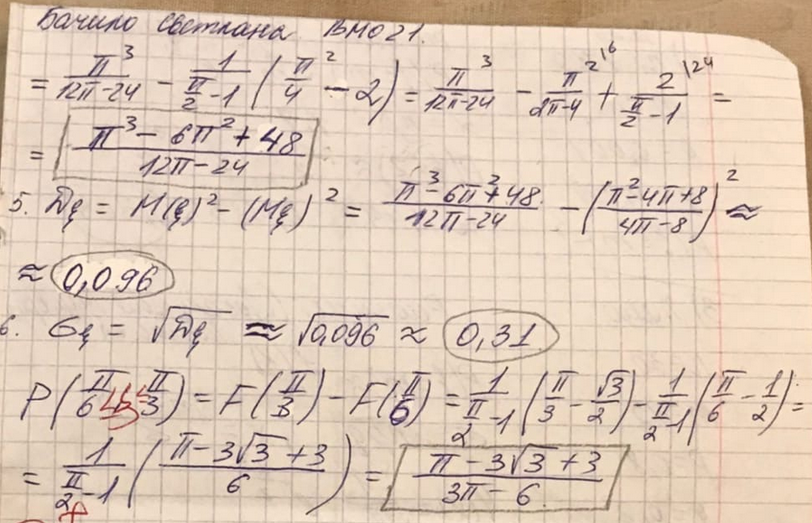 Бачило Светлана ВМО21.
= π³/(12π-24) - 1/(π/2-1) (π²/4 - 2) = π³/(12π-24) - π²/(2π-4) |6 + 2/(π/2-1) |24 =
= (π³ - 6π² + 48)/(12π-24)
5. Dξ = M(ξ)² - (Mξ)² = (π³-6π²+48)/(12π-24) - ((π²-4π+8)/(4π-8))² ≈
≈ 0,096
6. σξ = √Dξ ≈ √0,096 ≈ 0,31
P(π/6 π/3) = F(π/3) - F(π/6) = 1/(π/2-1) (π/3 - √3/2) - 1/(π/2-1) (π/6 - 1/2) =
= 1/(π/2-1) ((π-3√3+3)/6) = (π-3√3+3)/(3π-6)